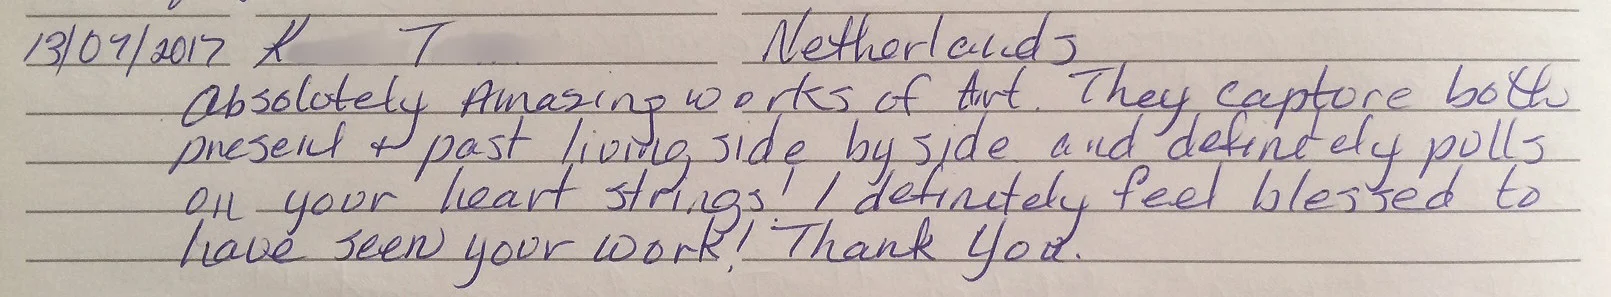 13/07/2017 K T Netherlands
Absolutely Amazing works of Art. They capture both
present + past living side by side and definetely pulls
on your heart strings! I definetely feel blessed to
have seen your work! Thank You.